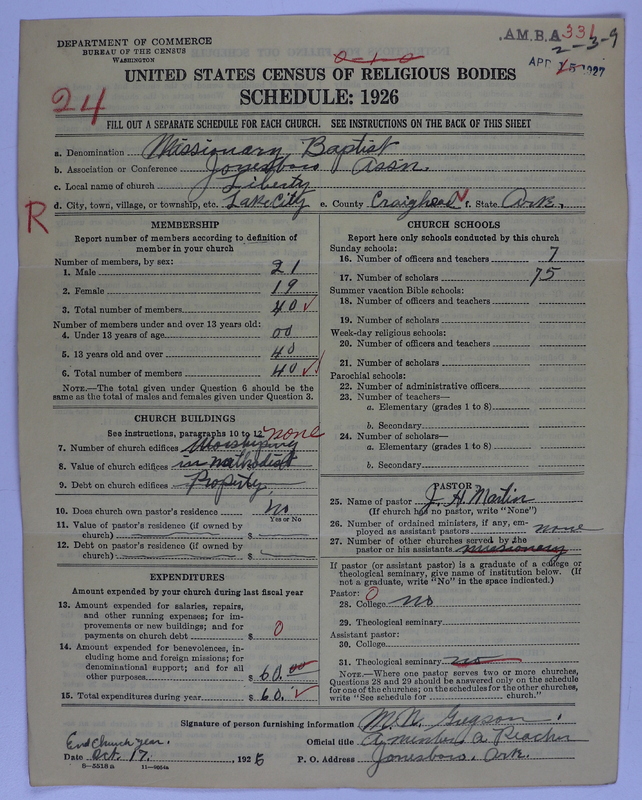 DEPARTMENT OF COMMERCE
BUREAU OF THE CENSUS
WASHINGTON
.A.M.B.A 331
2-3-9
APR 25 1927
UNITED STATES CENSUS OF RELIGIOUS BODIES
24
SCHEDULE: 1926
FILL OUT A SEPARATE SCHEDULE FOR EACH CHURCH. SEE INSTRUCTIONS ON THE BACK OF THIS SHEET
a. Denomination Missionary Baptist
b. Association or Conference Jonesboro Assn.
c. Local name of church Liberty
d. City, town, village, or township, etc. Lake City e. County Craighead f. State Ark.
R
MEMBERSHIP
Report number of members according to definition of member in your church
Number of members, by sex:
1. Male 21
2. Female 19
3. Total number of members 40
Number of members under and over 13 years old:
4. Under 13 years of age 00
5. 13 years old and over 40
6. Total number of members 40
NOTE.—The total given under Question 6 should be the same as the total of males and females given under Question 3.
CHURCH BUILDINGS
See instructions, paragraphs 10 to 12 none
7. Number of church edifices Worshiping
8. Value of church edifices in Methodist
9. Debt on church edifices Property
10. Does church own pastor's residence No
Yes or No
11. Value of pastor's residence (if owned by church) $
12. Debt on pastor's residence (if owned by church) $
EXPENDITURES
Amount expended by your church during last fiscal year
13. Amount expended for salaries, repairs, and other running expenses; for improvements or new buildings; and for payments on church debt $ 0
14. Amount expended for benevolences, including home and foreign missions; for denominational support; and for all other purposes $ 60.00
15. Total expenditures during year $ 60.
CHURCH SCHOOLS
Report here only schools conducted by this church
Sunday schools:
16. Number of officers and teachers 7
17. Number of scholars 75
Summer vacation Bible schools:
18. Number of officers and teachers
19. Number of scholars
Week-day religious schools:
20. Number of officers and teachers
21. Number of scholars
Parochial schools:
22. Number of administrative officers
23. Number of teachers—
a. Elementary (grades 1 to 8)
b. Secondary
24. Number of scholars—
a. Elementary (grades 1 to 8)
b. Secondary
PASTOR
25. Name of pastor J. H. Martin
(If church has no pastor, write "None")
26. Number of ordained ministers, if any, employed as assistant pastors none
27. Number of other churches served by the pastor or his assistants missionary
If pastor (or assistant pastor) is a graduate of a college or theological seminary, give name of institution below. (If not a graduate, write "No" in the space indicated.)
Pastor: 0
28. College no
29. Theological seminary
Assistant pastor:
30. College
31. Theological seminary no
NOTE.—Where one pastor serves two or more churches, Questions 28 and 29 should be answered only on the schedule for one of the churches; on the schedules for the other churches, write "See schedule for church."
Signature of person furnishing information M. N.
End church year.
Official title a
Date Oct. 17, 1926
P. O. Address Jonesboro, Ark.
8—5518 a 11—9054a